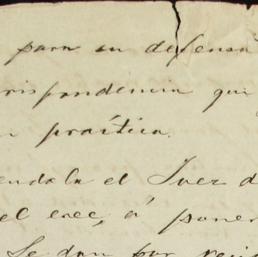 para su defensa
rispondencia que
práctica.
endola el Juez d
el cree, á poner
Se dan por